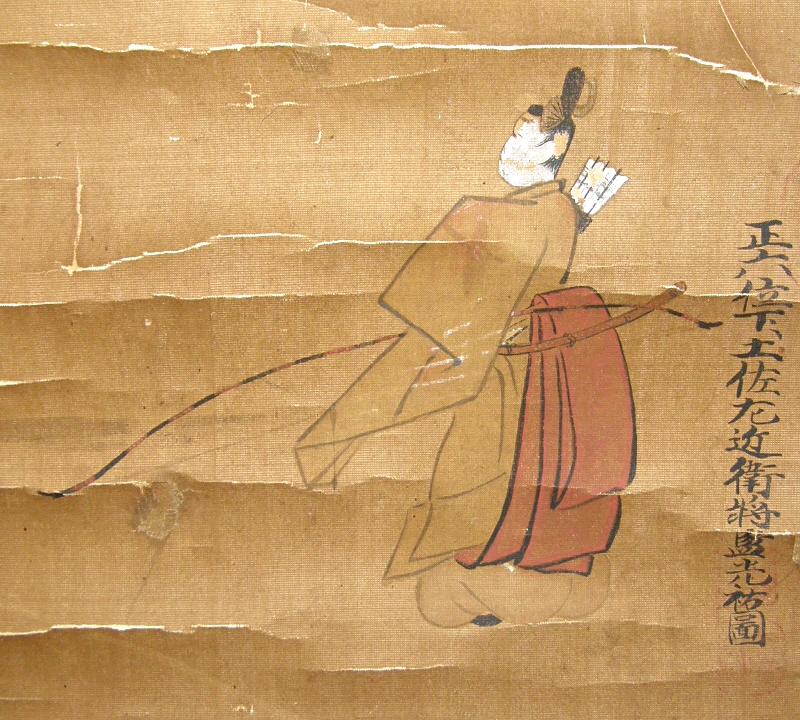 正六位下土佐左近衛将監光祐圖